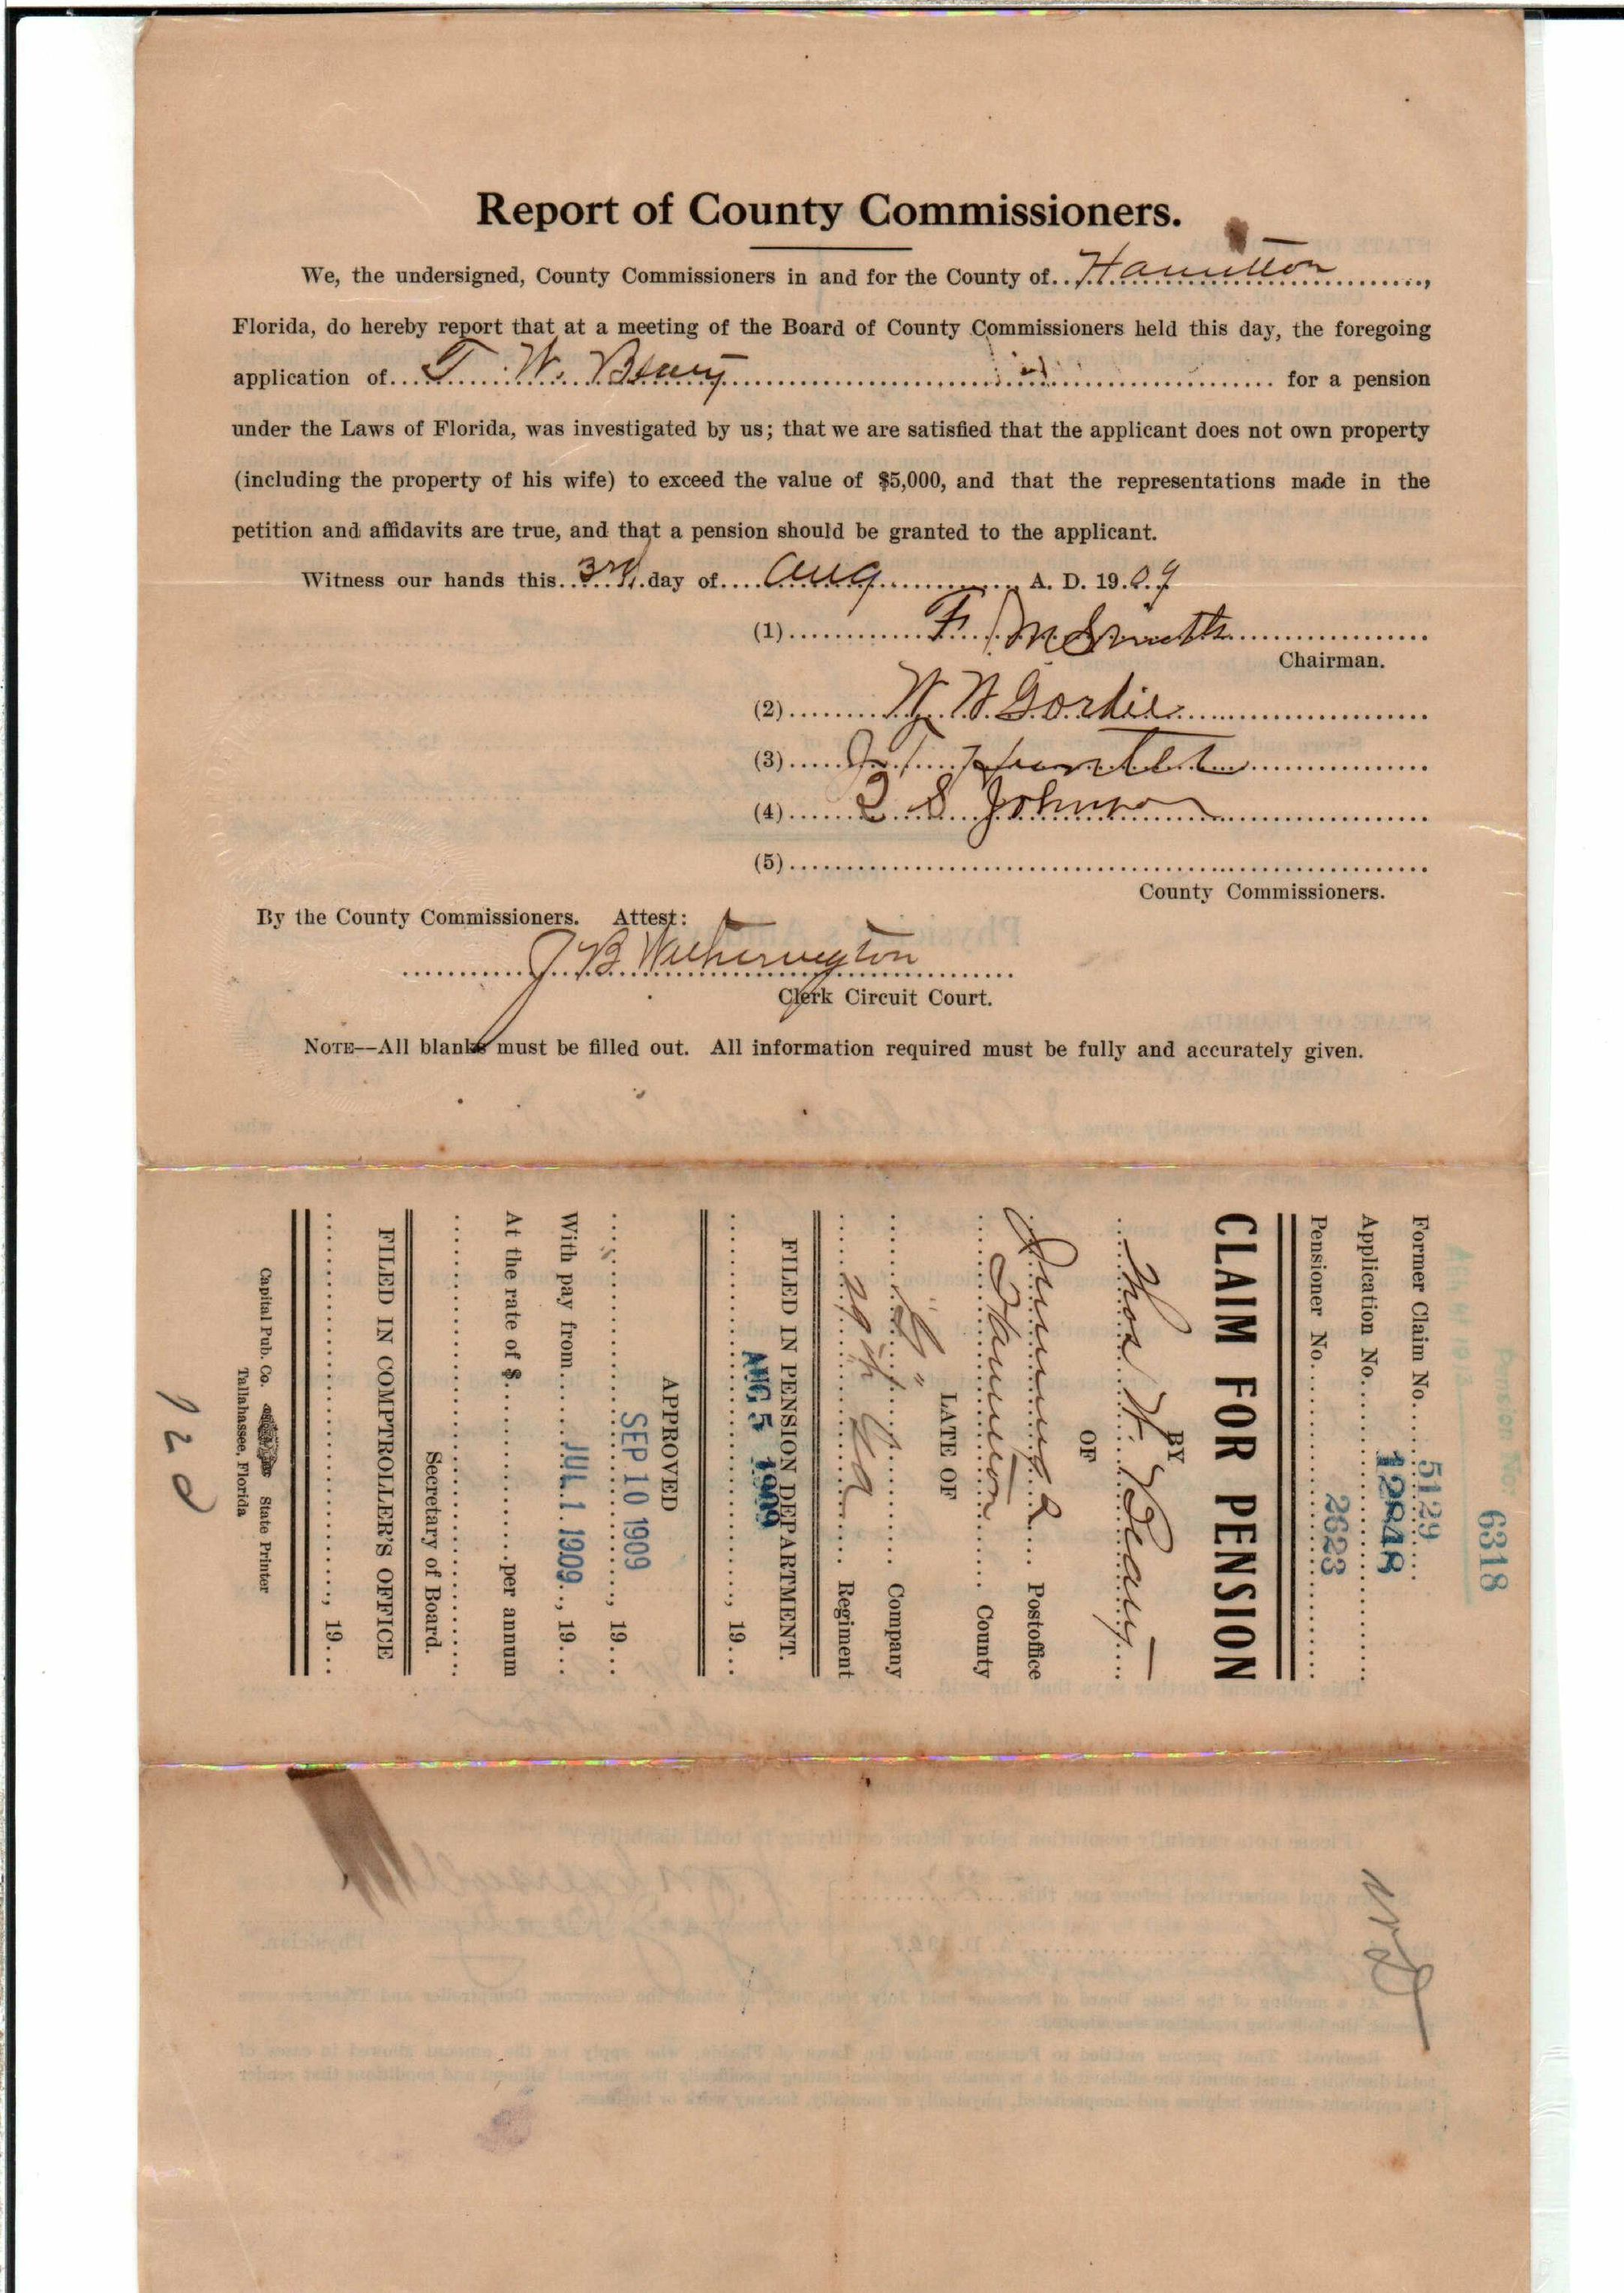 Report of County Commissioners.
We, the undersigned, County Commissioners in and for the County of Hamilton,
Florida, do hereby report that at a meeting of the Board of County Commissioners held this day, the foregoing
application of T. W. Beaty for a pension
under the Laws of Florida, was investigated by us; that we are satisfied that the applicant does not own property
(including the property of his wife) to exceed the value of $5,000, and that the representations made in the
petition and affidavits are true, and that a pension should be granted to the applicant.
Witness our hands this 3rd day of Aug A. D. 1909
(1) F. M Smith
Chairman.
(2) W. W.
(3) J. T. Hunter
(4) S Johnson
(5)
County Commissioners.
By the County Commissioners. Attest:
J B Witherington
Clerk Circuit Court.
NOTE—All blanks must be filled out. All information required must be fully and accurately given.
Pension No. 6318
Former Claim No. 5129
Application No. 12848
Pensioner No. 2623
CLAIM FOR PENSION
BY
Thos W. Beaty
OF
Jennings Postoffice
Hamilton County
LATE OF
"G" Company
29th Ga Regiment
FILED IN PENSION DEPARTMENT.
AUG 5 1909, 19
APPROVED
SEP 10 1909, 19
With pay from JUL 1 1909, 19
At the rate of $ per annum
Secretary of Board.
FILED IN COMPTROLLER'S OFFICE
, 19
Capital Pub. Co. State Printer
Tallahassee, Florida
120